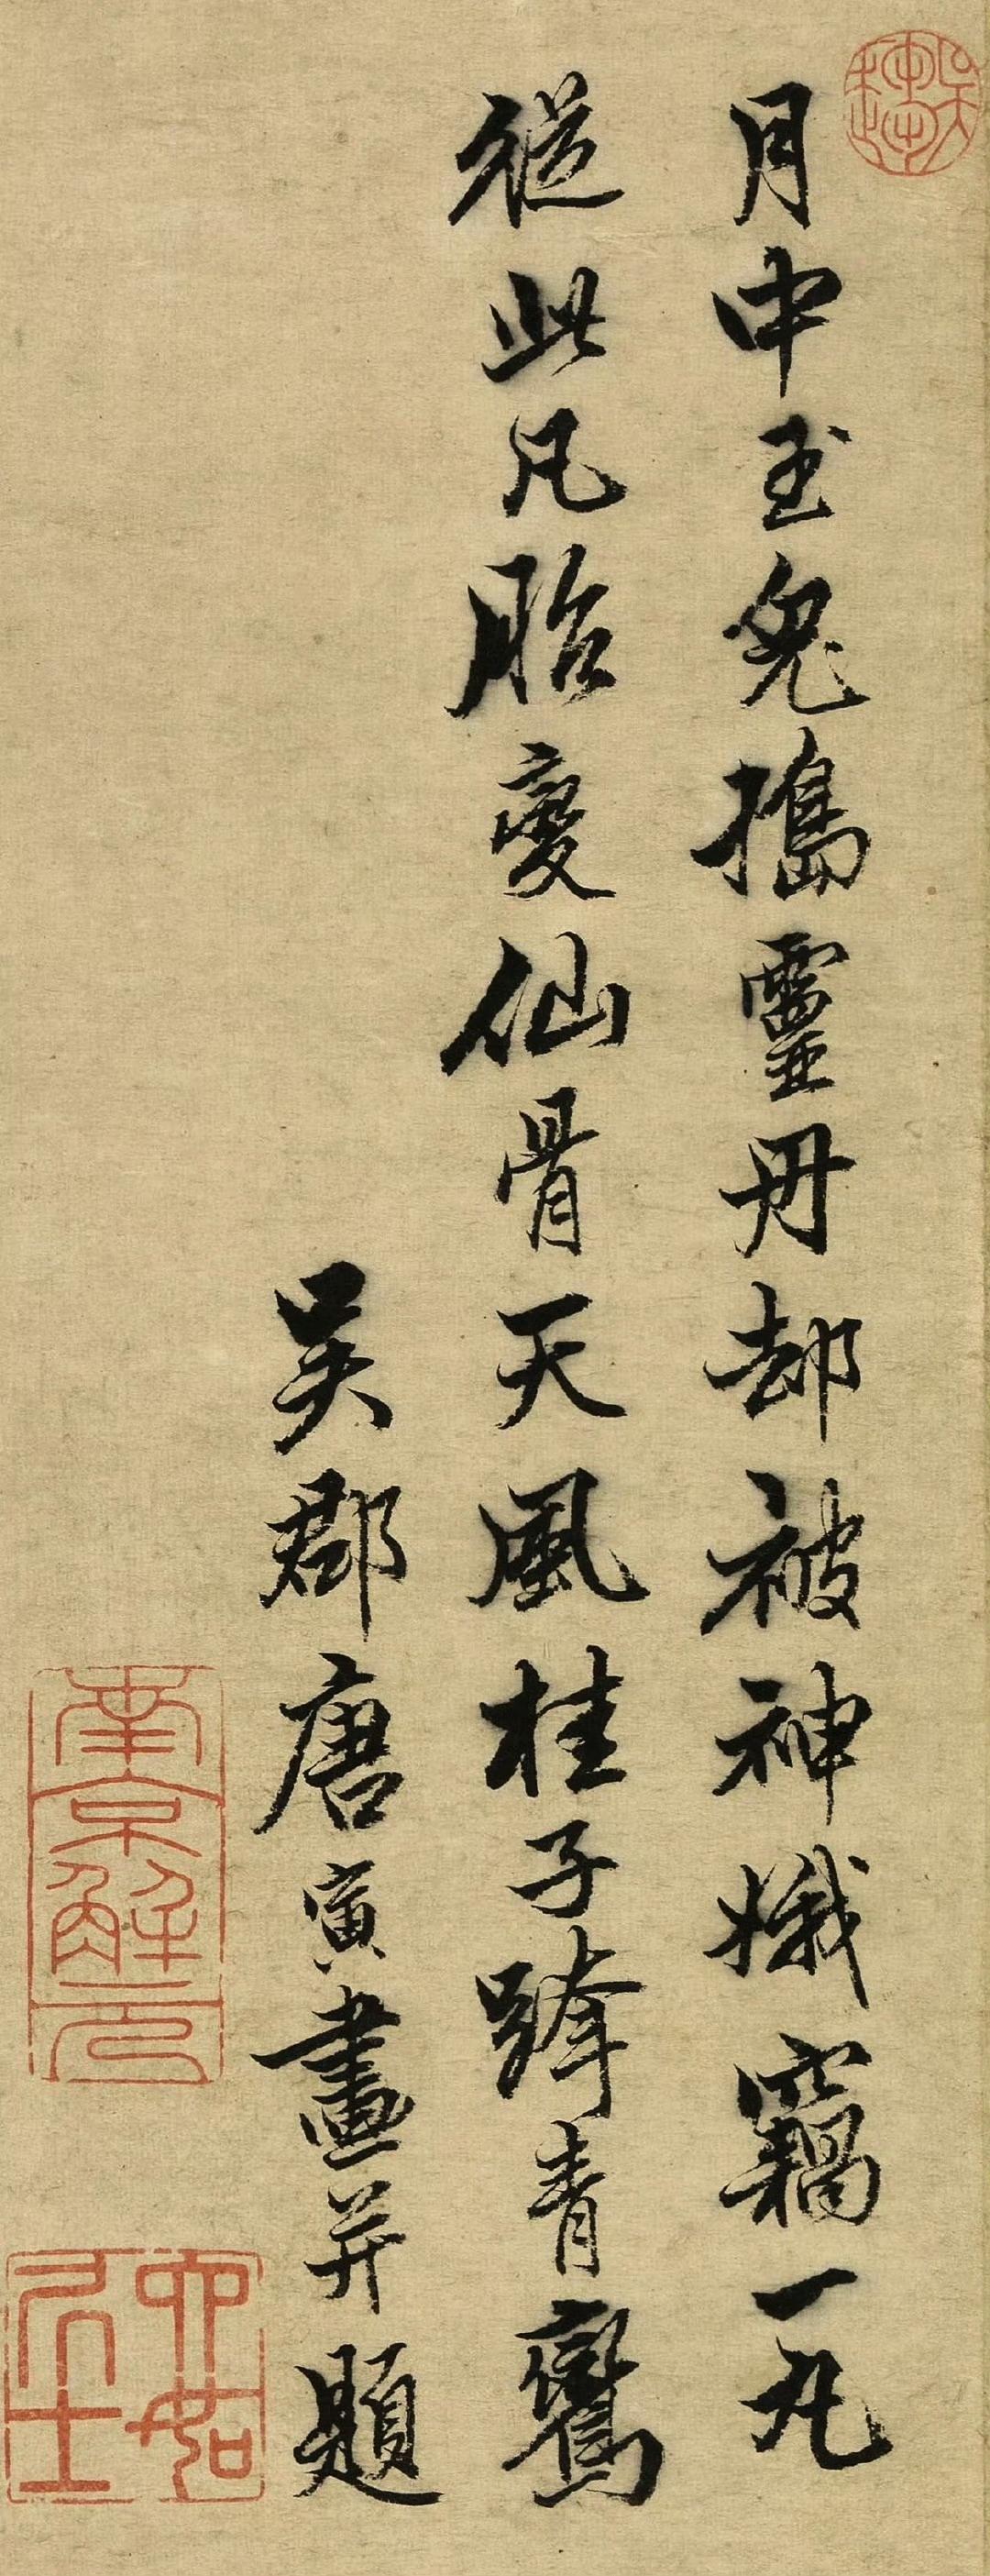 月中玉兔搗靈丹却被神娥竊一丸
從此凡胎變仙骨天風桂子跨青鸞
吳郡唐寅畫并題
吳趨
南京解元
六如居士